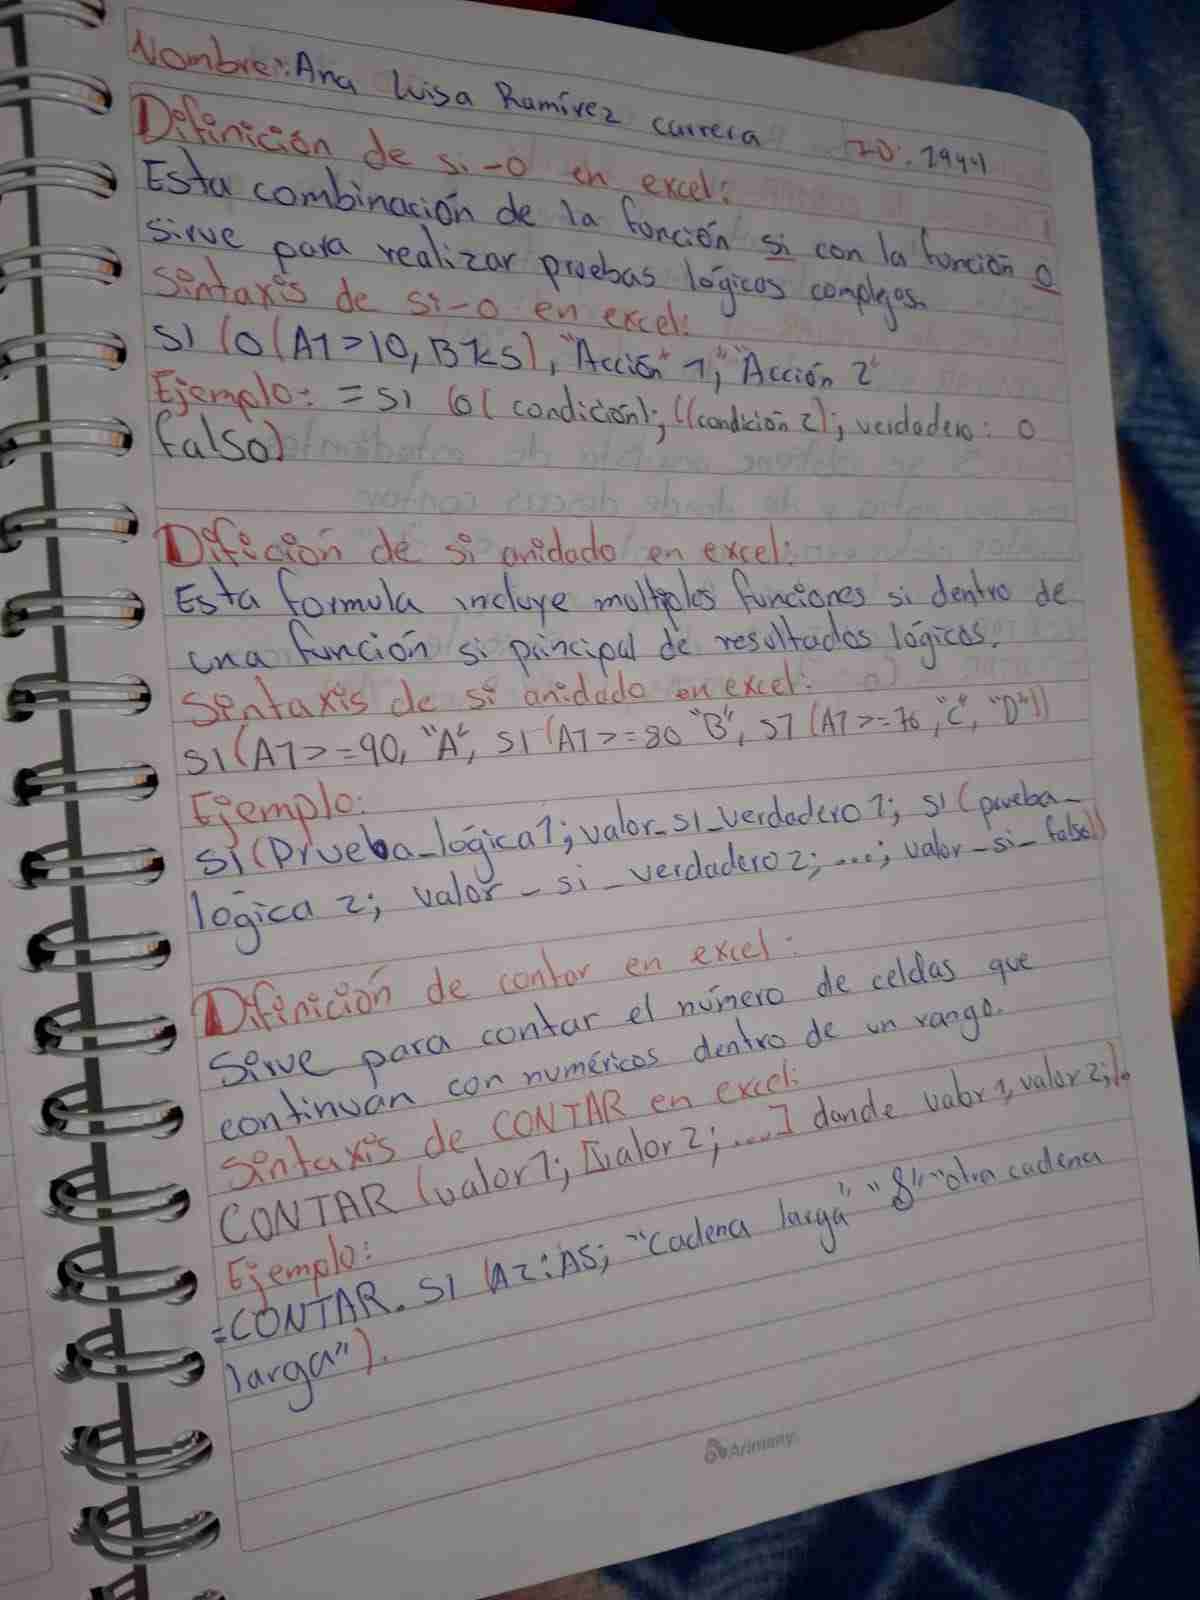 Nombre: Ana Luisa Ramírez carrera
Difinición de si-o en excel:
Esta combinación de la función si con la función o
sirve para realizar pruebas lógicas complejas.
Sintaxis de si-o en excel:
SI (O(A1>10, B1<5), "Acción" 1", "Acción 2"
Ejemplo: =SI (O( condición1; ((condición 2]; verdadero: o
falso)
Difición de si anidado en excel:
Esta formula incluye multiples funciones si dentro de
una función si principal de resultados lógicos.
Sintaxis de si anidado en excel:
SI(A1>=90, "A", SI(A1>=80 "B", SI (A1>=70, "C", "D"))
Ejemplo:
SI(Prueba_lógica1; valor_SI_verdadero1; SI(prueba_
lógica 2; valor_si_verdadero2; ...; valor_si_falso))
Difinición de contar en excel:
Sirve para contar el número de celdas que
continuan con numéricos dentro de un rango.
Sintaxis de CONTAR en excel:
CONTAR (valor1; [valor2; ....] dande valor1, valor2;
Ejemplo:
=CONTAR. SI (A2:A5; "Cadena larga" "&" "otra cadena
larga").
Arimany